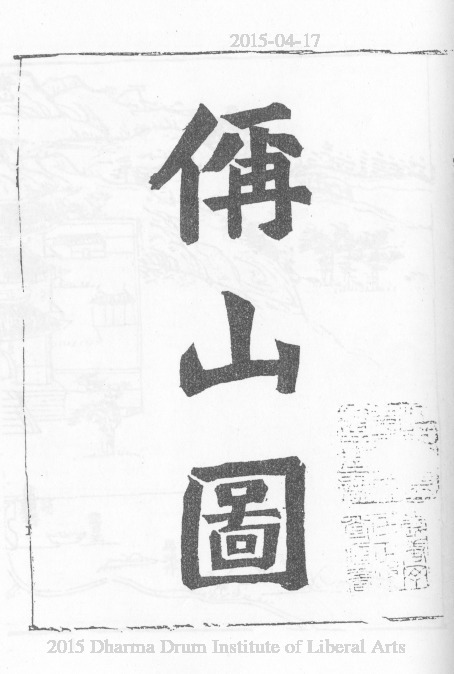 2015-04-17
偁山圖
2015 Dharma Drum Institute of Liberal Arts